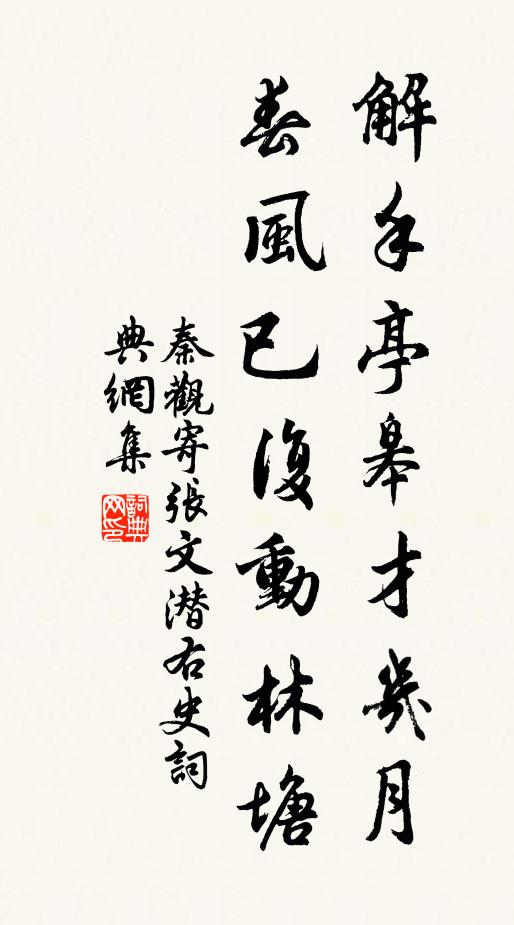 解手亭皋才幾月
春風已復動林塘
秦觀寄張文潜右史詞
典網集
詞典網印